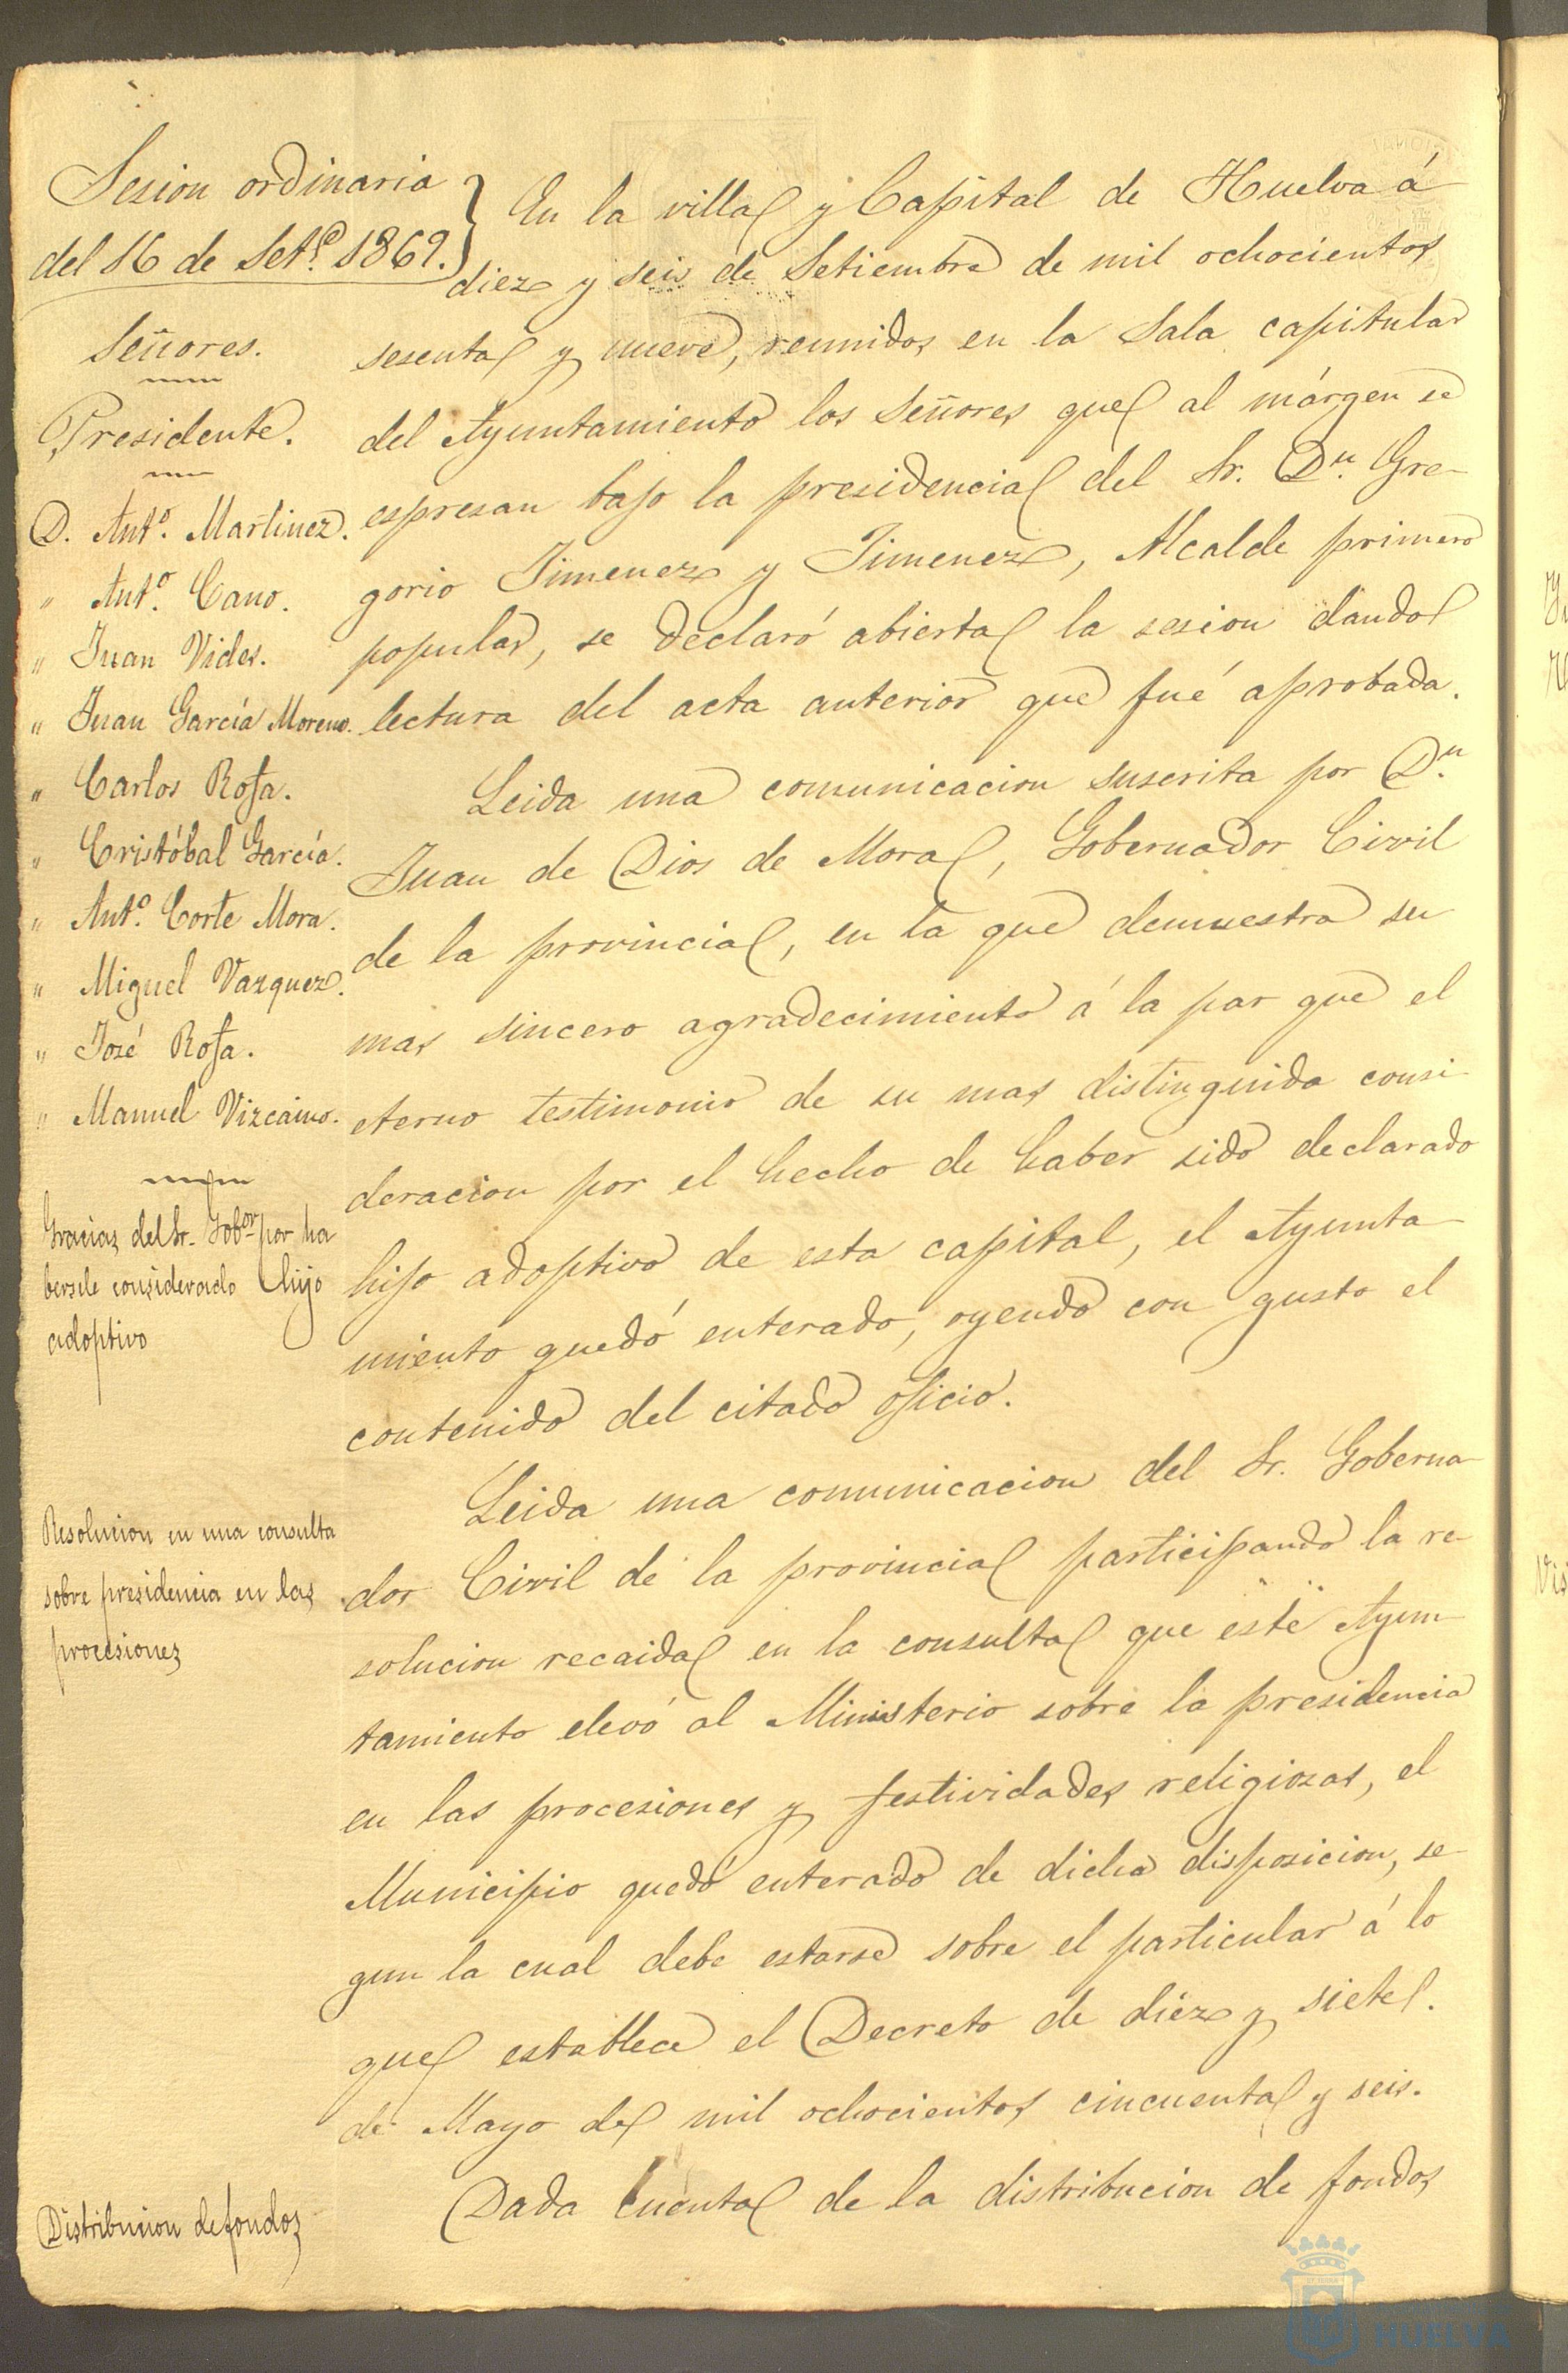 Sesion ordinaria
del 16 de Set.e 1869.
Señores.
Presidente.
D. Ant.o Martinez.
" Ant.o Cano.
" Juan Vides.
" Juan García Moreno.
" Carlos Rofa.
" Cristóbal García.
" Ant.o Corte Mora.
" Miguel Vazquez.
" José Rofa.
" Manuel Vizcaino.
Gracias del Sr. Gob.or por ha
bersele considerado hijo
adoptivo
Resolucion en una consulta
sobre presidencia en las
procesiones
Distribucion de fondos
En la villa y Capital de Huelva á
diez y seis de Setiembre de mil ochocientos
sesenta y nueve, reunidos en la Sala capitular
del Ayuntamiento los Señores que al márgen se
espresan bajo la presidencia del Sr. D.n Gre-
gorio Jimenez y Jimenez, Alcalde primero
popular, se declaró abierta la sesion dando
lectura del acta anterior que fué aprobada.
Leida una comunicacion suscrita por D.n
Juan de Dios de Mora, Gobernador Civil
de la provincia, en la que demuestra su
mas sincero agradecimiento á la par que el
eterno testimonio de su mas distinguida consi-
deracion por el hecho de haber sido declarado
hijo adoptivo de esta capital, el Ayunta-
miento quedó enterado, oyendo con gusto el
contenido del citado oficio.
Leida una comunicacion del Sr. Goberna-
dor Civil de la provincia participando la re-
solucion recaida en la consulta que este Ayun-
tamiento elevó al Ministerio sobre la presidencia
en las procesiones y festividades religiosas, el
Municipio quedó enterado de dicha disposicion, se-
gun la cual debe estarse sobre el particular á lo
que establece el Decreto de diez y siete
de Mayo de mil ochocientos cincuenta y seis.
Dada cuenta de la distribucion de fondos
HUELVA